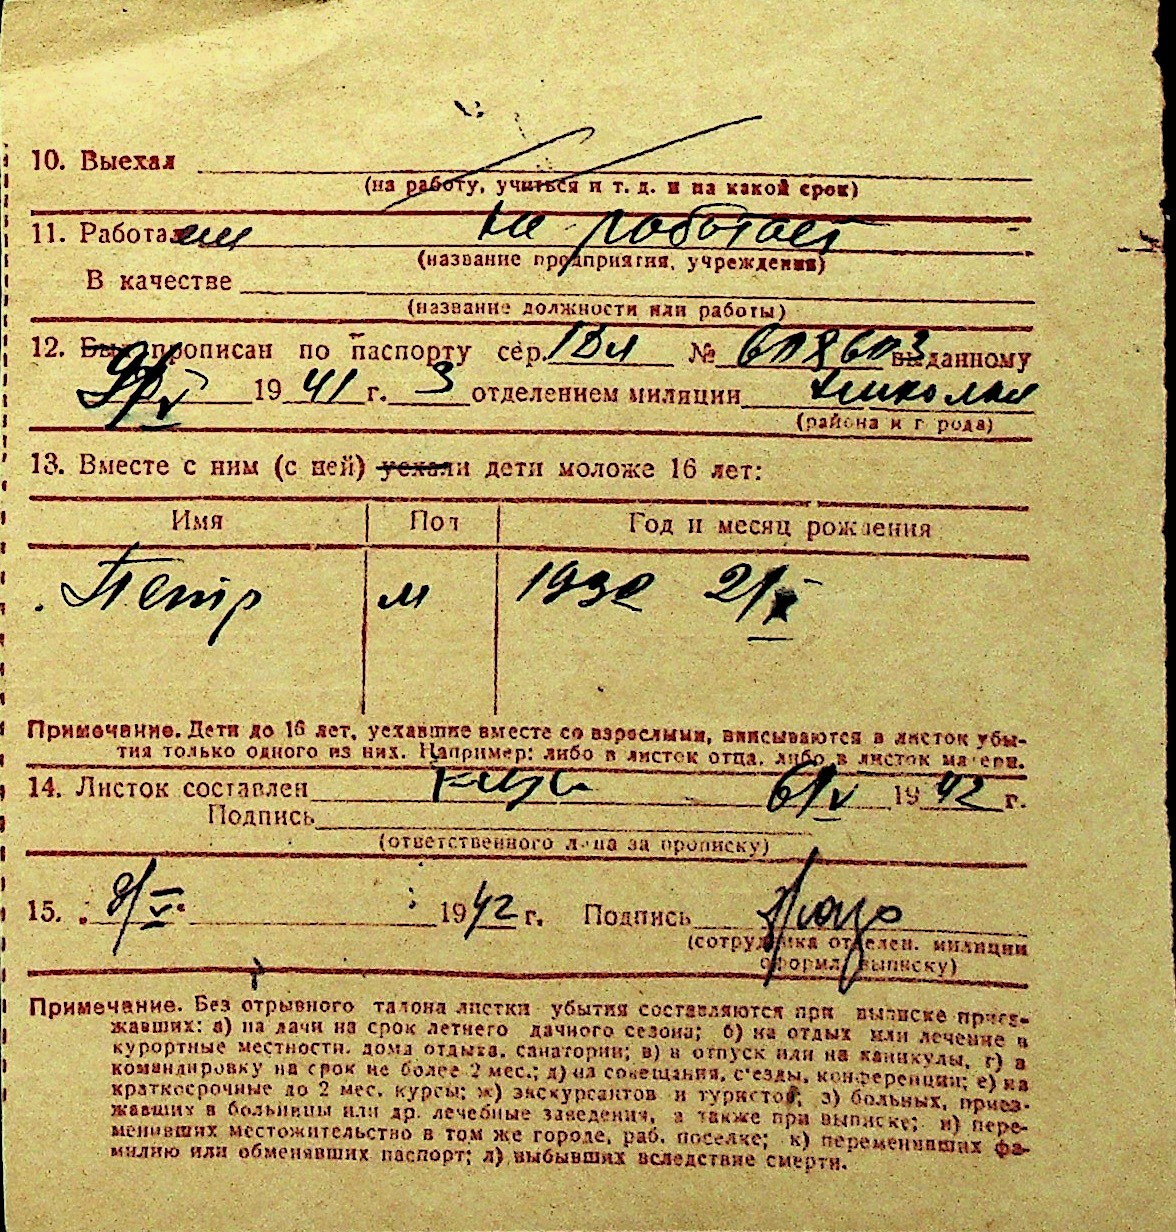 10. Выехал
(на работу, учиться и т. д. и на какой срок)
11. Работал не работает
(название предприятия, учреждения)
В качестве
(название должности или работы)
12. Был прописан по паспорту сер. № выданному
19 41 г. 3 отделением милиции
(района и города)
13. Вместе с ним (с ней) уехали дети моложе 16 лет:
Имя Пол Год и месяц рождения
Петр м 193
Примечание. Дети до 16 лет, уехавшие вместе со взрослыми, вписываются в листок убы-
тия только одного из них. Например: либо в листок отца, либо в листок матери.
14. Листок составлен 6/V 19 42 г.
Подпись
(ответственного лица за прописку)
15. 8/V 19 42 г. Подпись
(сотрудника отделен. милиции
оформл. выписку)
Примечание. Без отрывного талона листки убытия составляются при выписке приез-
жавших: а) на дачи на срок летнего дачного сезона; б) на отдых или лечение в
курортные местности, дома отдыха, санатории; в) в отпуск или на каникулы, г) в
командировку на срок не более 2 мес.; д) на совещания, с'езды, конференции; е) на
краткосрочные до 2 мес. курсы; ж) экскурсантов и туристов; з) больных, приез-
жавших в больницы или др. лечебные заведения, а также при выписке; и) пере-
менивших местожительство в том же городе, раб. поселке; к) переменивших фа-
милию или обменявших паспорт; л) выбывших вследствие смерти.